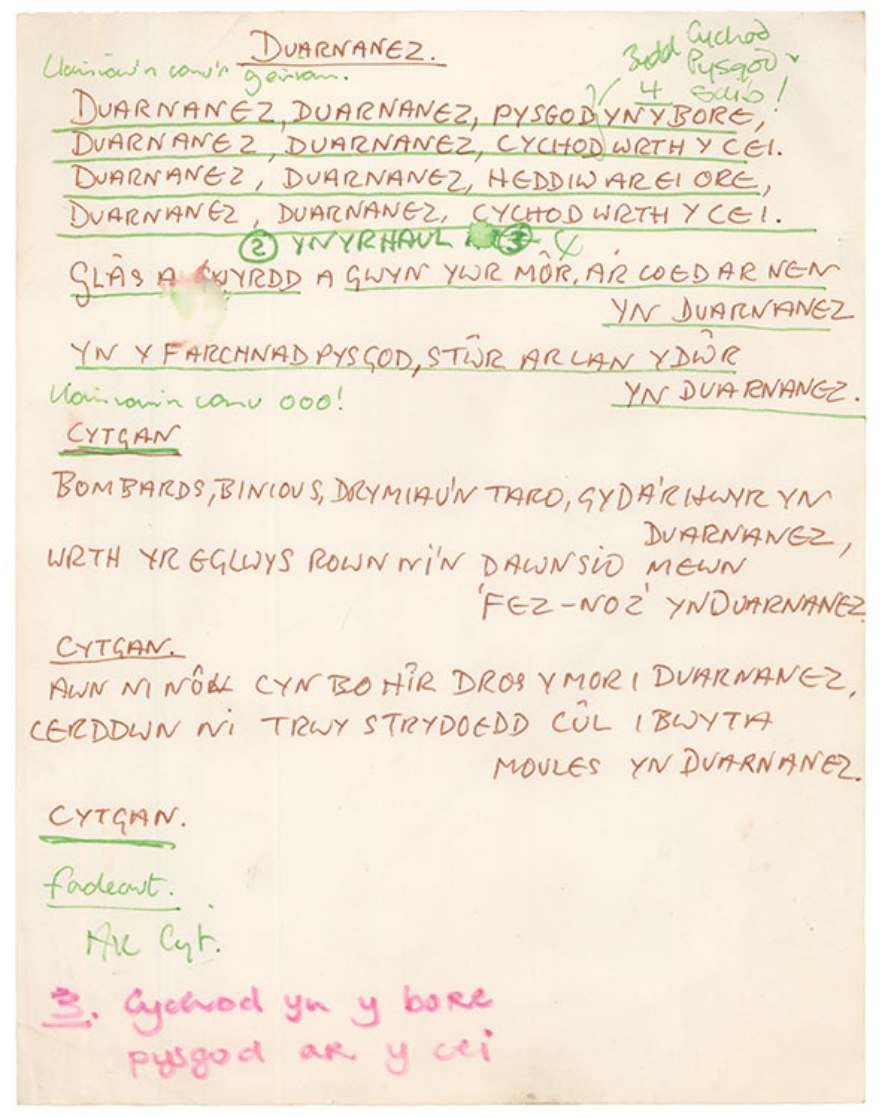 DUARNANEZ.
Cychod
Bydd Pysgod
Lleisiau'n canu'n geiriau.
4
DUARNANEZ, DUARNANEZ, PYSGOD YN Y BORE,
DUARNANEZ, DUARNANEZ, CYCHOD WRTH Y CEI.
DUARNANEZ, DUARNANEZ, HEDDIW AR EI ORE,
DUARNANEZ, DUARNANEZ, CYCHOD WRTH Y CEI.
② YN YR HAUL ③
GLÂS A GWYRDD A GWYN YW'R MÔR, A'R COED AR NEN
YN DUARNANEZ
YN Y FARCHNAD PYSGOD, STŴR AR LAN Y DŴR
YN DUARNANEZ.
Lleisiau'n canu ooo!
CYTGAN
BOMBARDS, BINIOUS, DRYMIAU'N TARO, GYDA'R HWYR YN
DUARNANEZ,
WRTH YR EGLWYS ROWN NI'N DAWNSIO MEWN
'FEZ-NOZ' YN DUARNANEZ
CYTGAN.
AWN NI NÔL CYN BO HÎR DROS Y MOR I DUARNANEZ,
CERDDWN NI TRWY STRYDOEDD CÛL I BWYTA
MOULES YN DUARNANEZ.
CYTGAN.
fadeout.
AR Cyt.
3. Cychod yn y bore
pysgod ar y cei